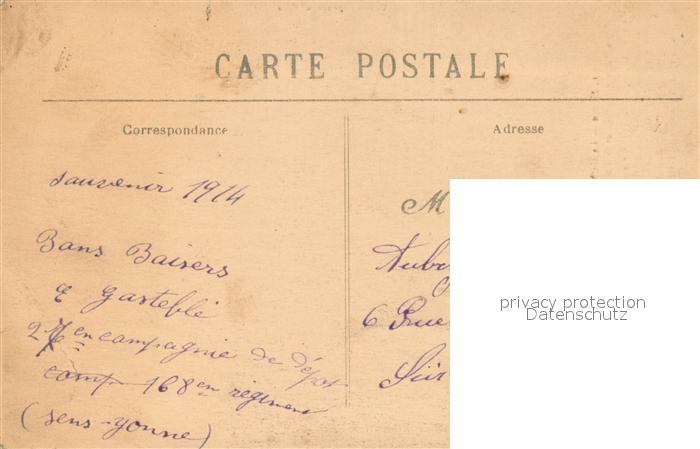 CARTE POSTALE
Correspondance
Adresse
souvenir 1914
Bons Baisers
E Gasteblé
27 en campagnie de dépot
comp 168 en régiment
(sens-yonne)
M
Aube
6 Rue
Sür
privacy protection
Datenschutz